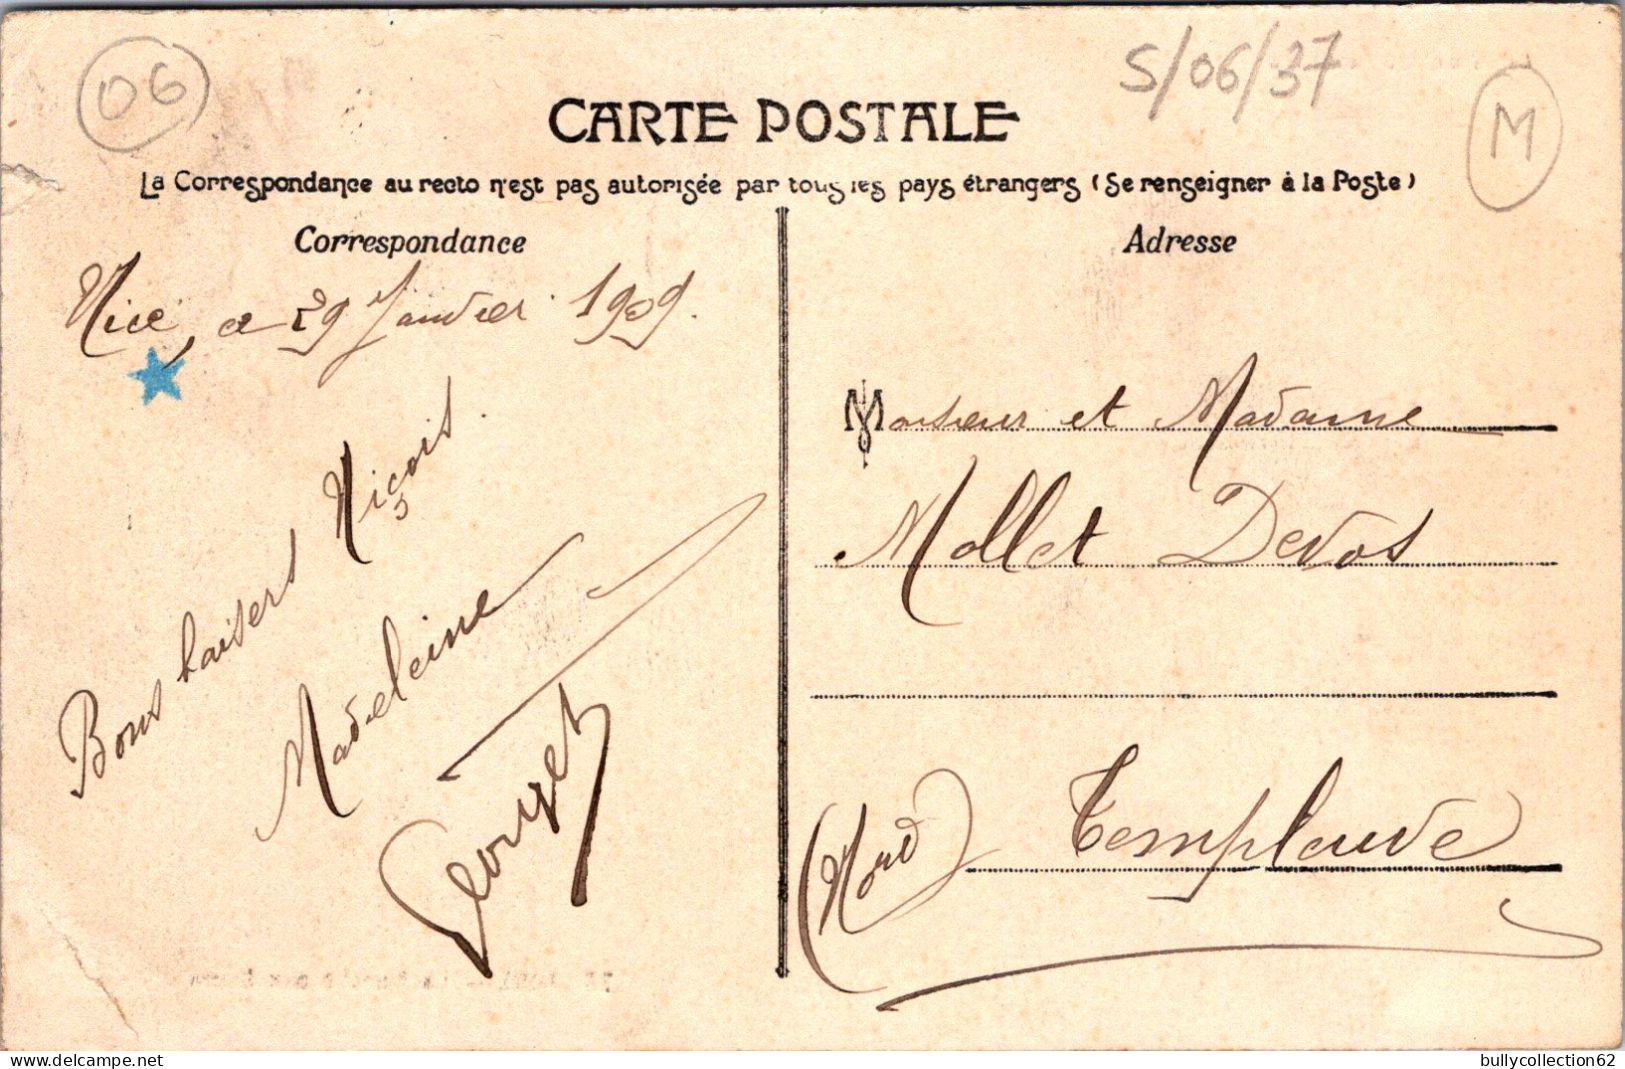 06
S/06/37
M
CARTE POSTALE
La Correspondance au recto n'est pas autorisée par tous les pays étrangers (Se renseigner à la Poste)
Correspondance
Nice, ce 29 Janvier 1909.
Bons baisers Niçois.
Madeleine
Georget
Adresse
Monsieur et Madame
Mollet Devos
Templeuve
(Nord)
bullycollection62